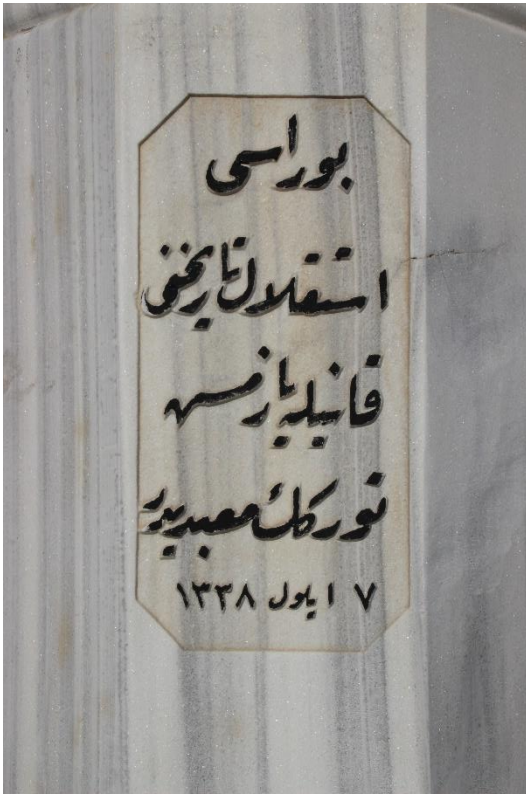 بوراسی
استقلال تاریخنی
قانیله یازمش
تورکك معبدیدر
٧ ایلول ١٣٣٨